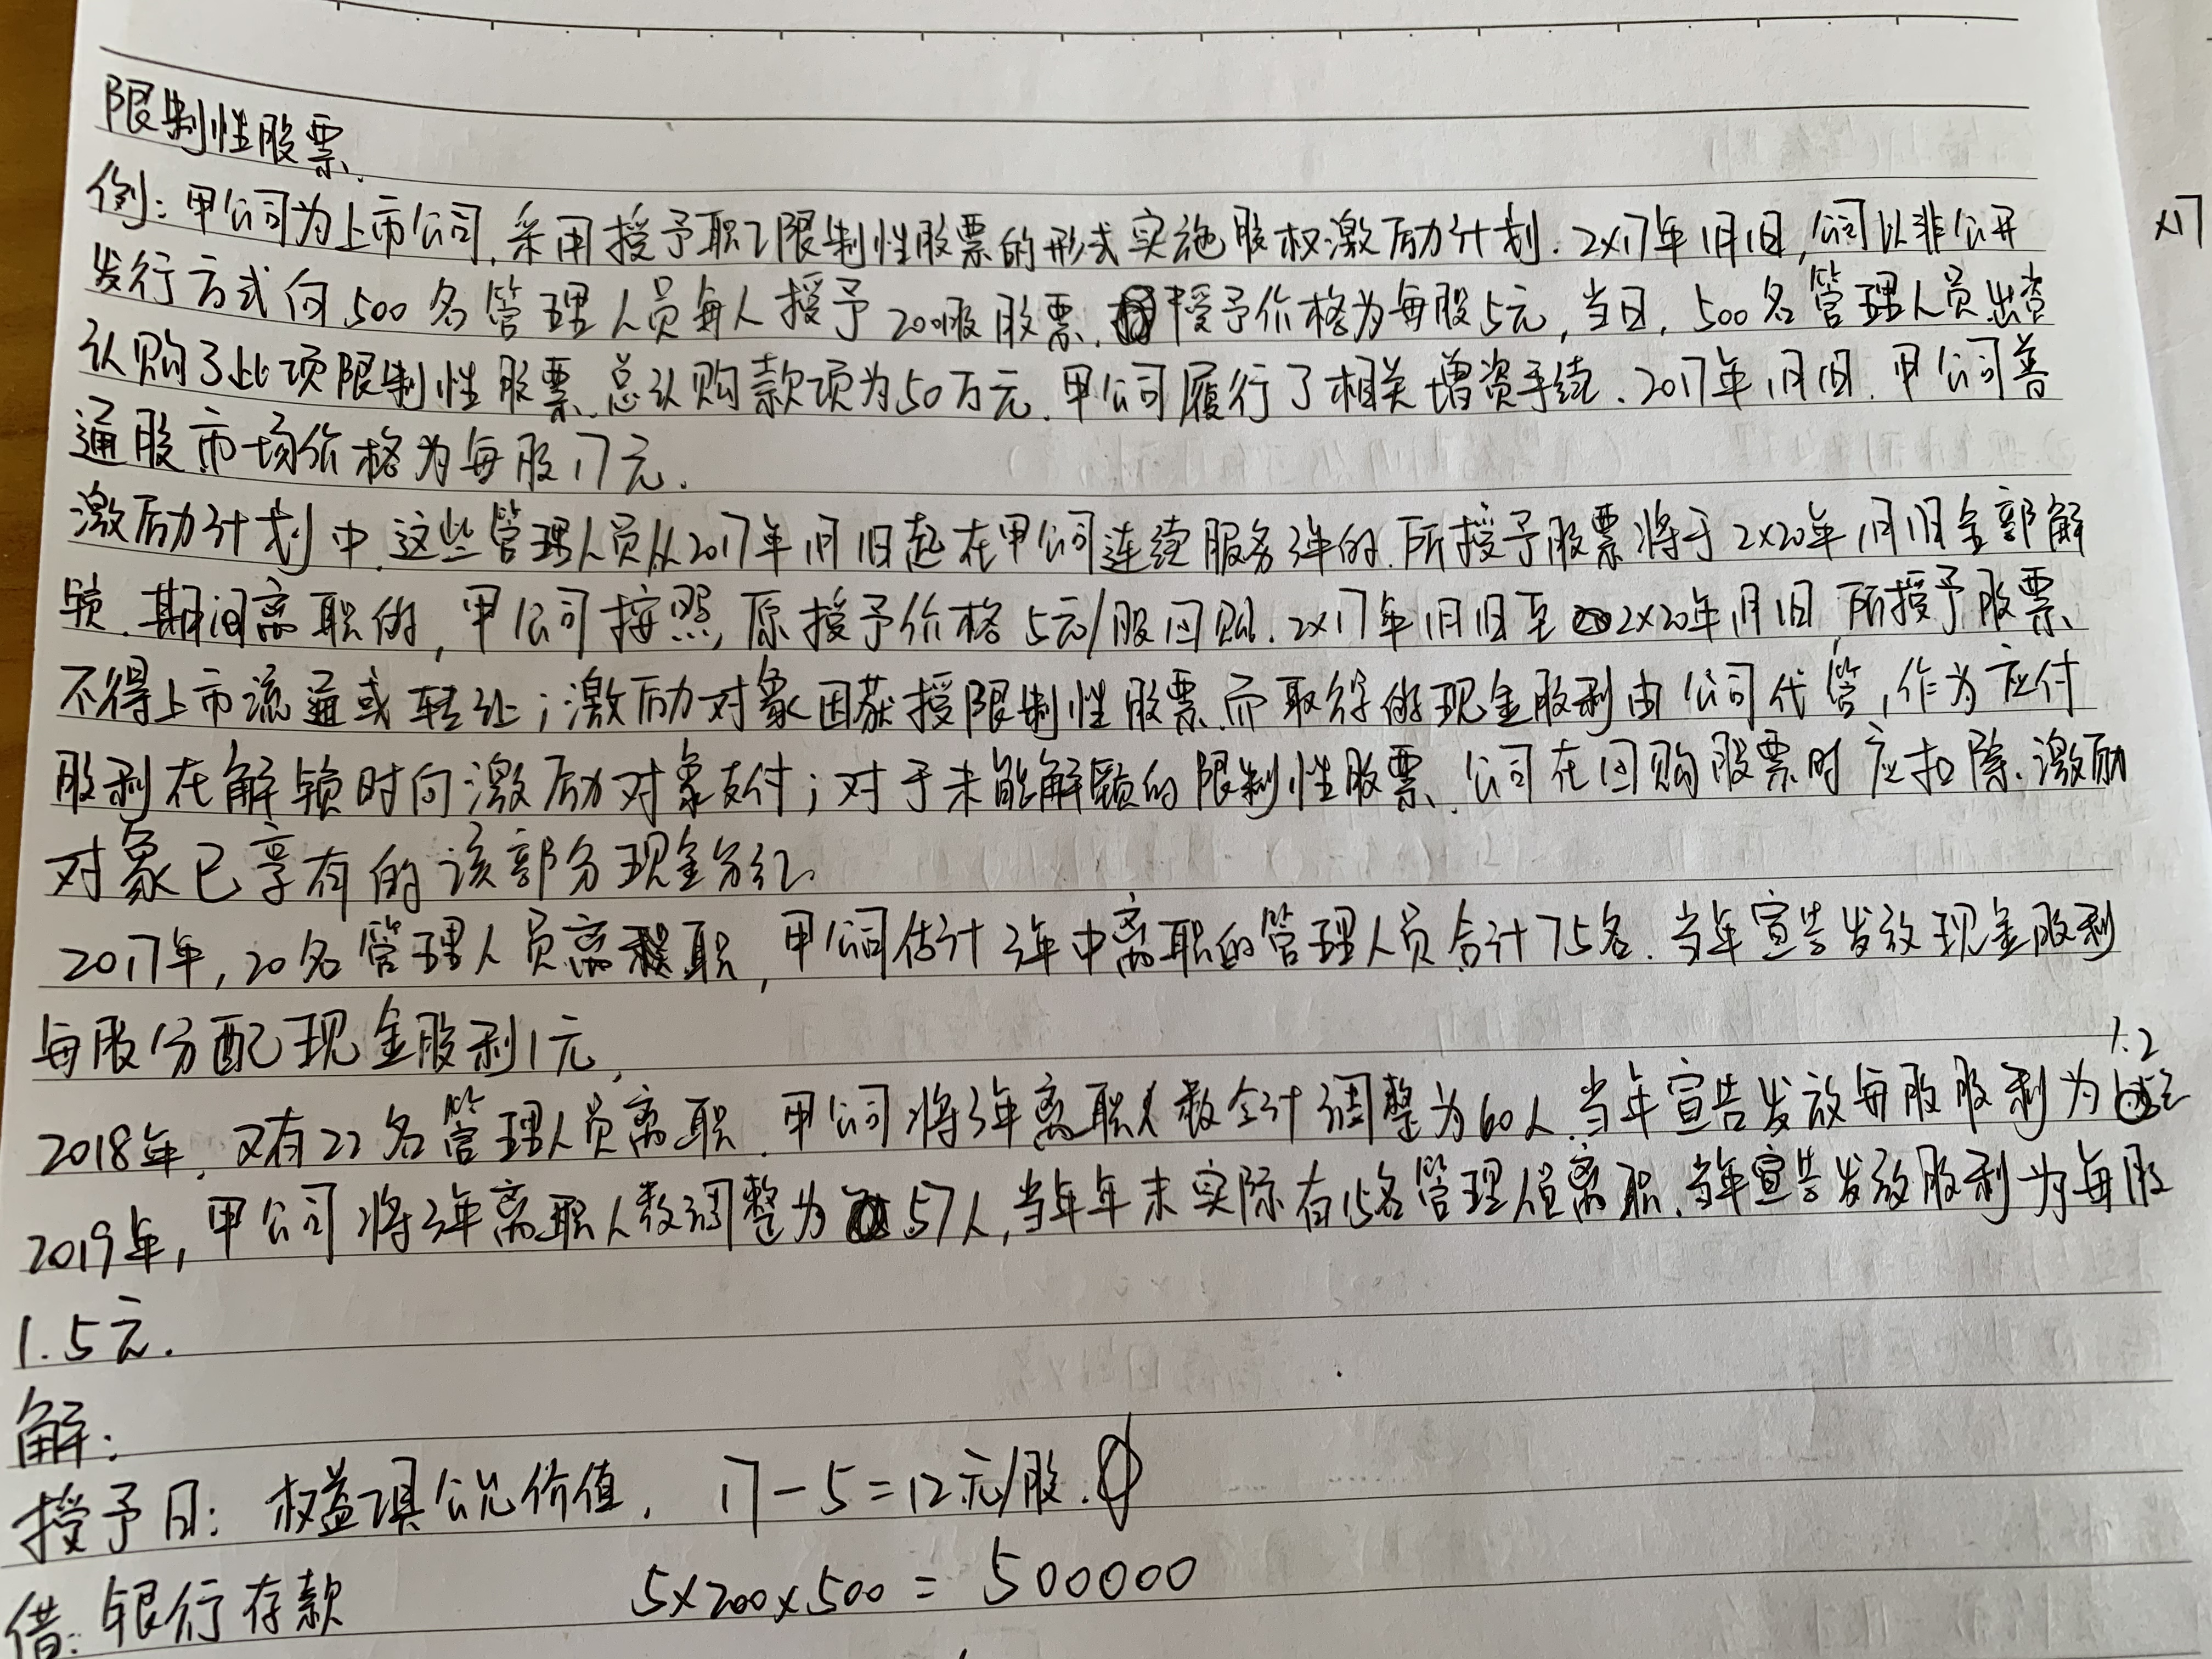 限制性股票
例:甲公司为上市公司,采用授予职工限制性股票的形式实施股权激励计划.2X17年1月1日,公司以非公开
发行方式向500名管理人员每人授予200股股票,授予价格为每股5元,当日,500名管理人员出资
认购了此项限制性股票,总认购款项为50万元.甲公司履行了相关增资手续.2017年1月1日,甲公司普
通股市场价格为每股17元.
激励计划中,这些管理人员从2017年1月1日起在甲公司连续服务3年的,所授予股票将于2X20年1月1日全部解
锁.期间离职的,甲公司将按照原授予价格5元/股回购.2X17年1月1日至2X20年1月1日,所授予股票
不得上市流通或转让;激励对象因获授限制性股票而取得的现金股利由公司代管,作为应付
股利在解锁时向激励对象支付;对于未能解锁的限制性股票,公司在回购股票时应扣除激励
对象已享有的该部分现金分红.
2017年,20名管理人员离职,甲公司估计3年中离职的管理人员合计75名.当年宣告发放现金股利
每股分配现金股利1元
2018年,又有22名管理人员离职,甲公司将3年离职人数合计调整为60人.当年宣告发放每股股利为
1.2
2019年,甲公司将3年离职人数调整为57人,当年年末实际有15名管理人员离职.当年宣告发放股利为每股
1.5元.
解:
授予日:权益工具公允价值.17-5=12元/股.
5×200×500=500000
借:银行存款
X17